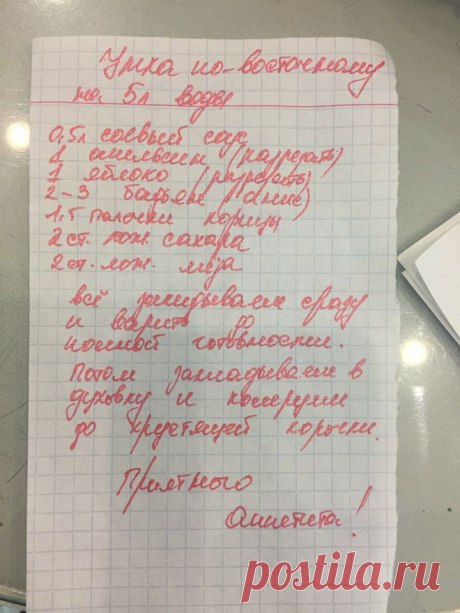 Утка по-восточному
на 5л воды
0,5л соевый сок
1 апельсин (разрезать)
1 яблоко (разрезать)
2-3 бадьян (анис)
1,5 палочки корицы
2 ст. лож. сахара
2 ст. лож. мёда
всё закидываем сразу
и варить до
полной готовности.
Потом закладываем в
духовку и колеруем
до хрустящей корочки.
Приятного
Аппетита!
postila.ru